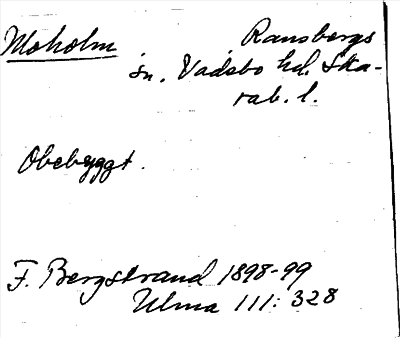 Moholm Ransbergs
sn. Vadsbo hd. Ska-
rab. l.
Obebyggt.
F. Bergstrand 1898-99
Ulma 111: 328